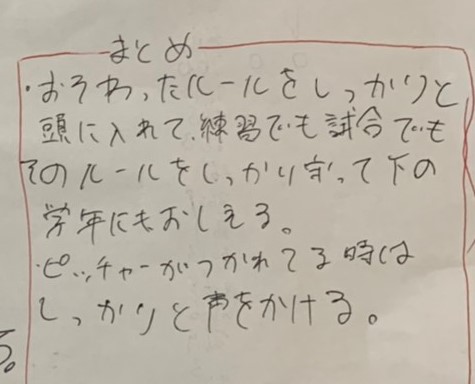 まとめ
・おそわったルールをしっかりと
頭に入れて、練習でも試合でも
そのルールをしっかり守って下の
学年にもおしえる。
・ピッチャーがつかれてる時は
しっかりと声をかける。
る。